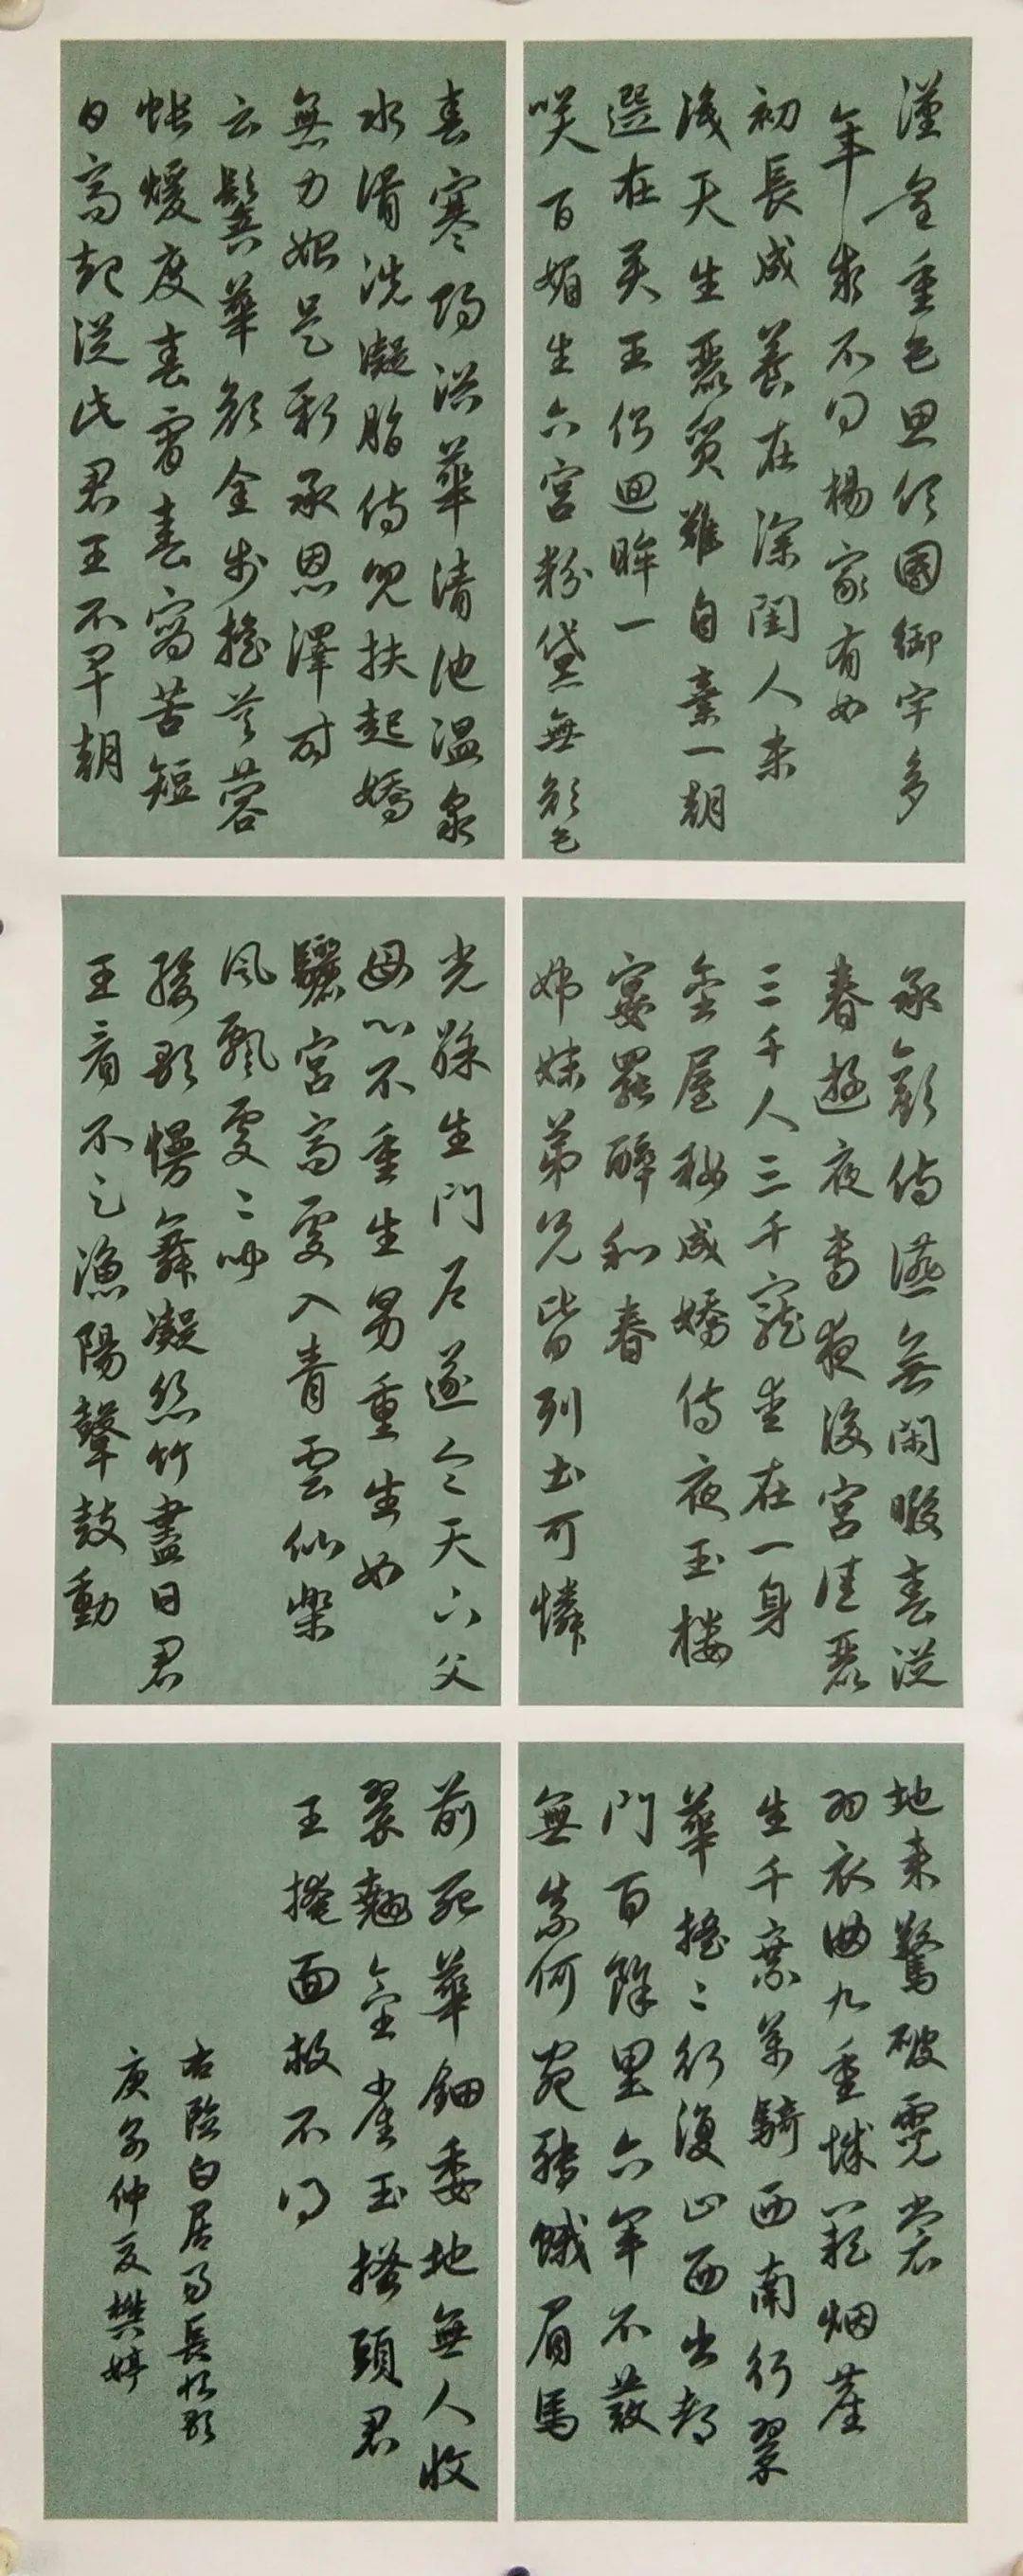 漢皇重色思傾國御宇多
年求不得楊家有女
初長成養在深閨人未
識天生麗質難自棄一朝
選在君王側回眸一
笑百媚生六宮粉黛無顏色
春寒賜浴華清池溫泉
水滑洗凝脂侍兒扶起嬌
無力始是新承恩澤時
云鬢華顏金步搖芙蓉
帳煖度春宵春宵苦短
日高起從此君王不早朝
承歡侍宴無閑暇春從
春遊夜專夜後宮佳麗
三千人三千寵愛在一身
金屋妝成嬌侍夜玉樓
宴罷醉和春
姊妹弟兄皆列土可憐
光彩生門戶遂令天下父
母心不重生男重生女
驪宮高處入青雲仙樂
風飄處〻聞
緩歌慢舞凝絲竹盡日君
王看不足漁陽鼙鼓動
地來驚破霓裳
羽衣曲九重城闕烟塵
生千乘萬騎西南行翠
華搖〻行復止西出都
門百餘里六軍不發
無奈何宛轉蛾眉馬
前死華鈿委地無人收
翠翹金雀玉搔頭君
王掩面救不得
右臨白居易長恨歌
庚子仲夏樊婷